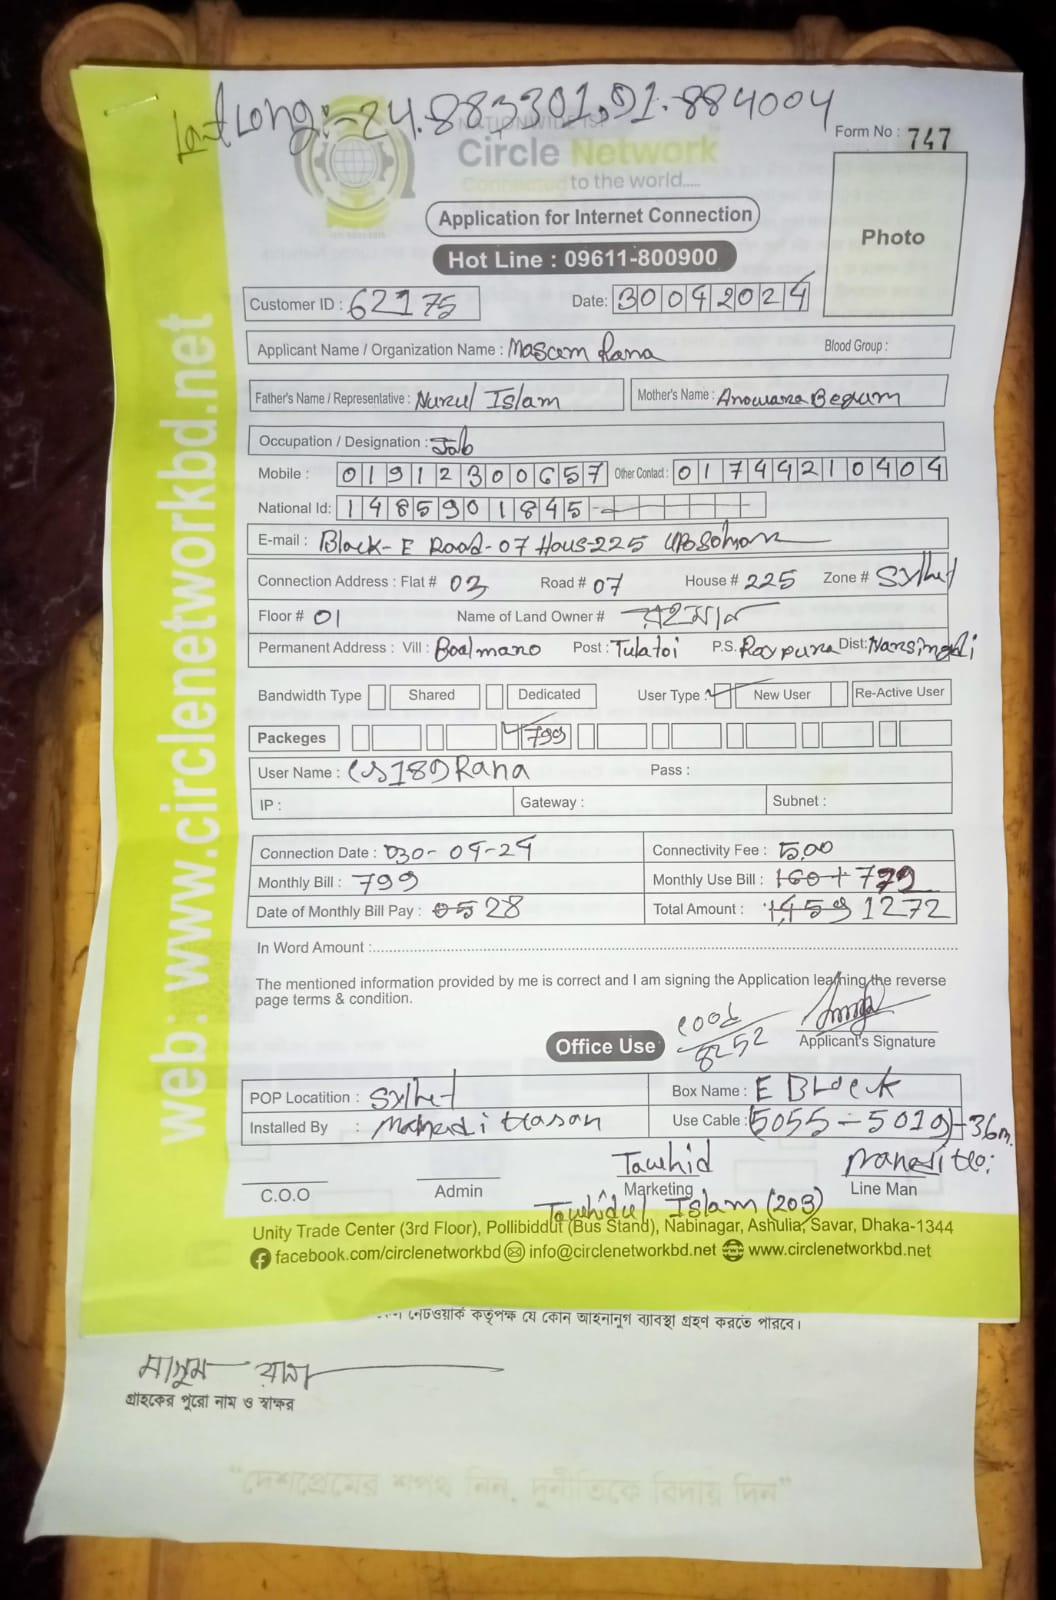 Lat Long:- 24.883301,91.884004
NATIONWIDE ISP
Form No : 747
Circle Network
Connected to the world.....
Photo
Application for Internet Connection
Hot Line : 09611-800900
Customer ID : 62175 Date: 30042024
Applicant Name / Organization Name : Mascem Rana Blood Group :
Father's Name / Representative : Nurul Islam Mother's Name : Anowara Begum
Occupation / Designation : Job
Mobile : 01912300657 Other Contact : 01744210404
National Id: 1485901845
E-mail : Block- E Road-07 Hous-225
Connection Address : Flat # 03 Road # 07 House # 225 Zone # Sylhet
Floor # 01 Name of Land Owner # রহমান
Permanent Address : Vill : Boalmaro Post : Tulatoi P.S. Raypura Dist: Narsingdi
Bandwidth Type Shared Dedicated User Type : New User Re-Active User
Packeges 799
User Name : CS189Rana Pass :
IP : Gateway : Subnet :
Connection Date : 030-04-24 Connectivity Fee : 500
Monthly Bill : 799 Monthly Use Bill : 160+ 779
Date of Monthly Bill Pay : 05 28 Total Amount : 1,459 1272
In Word Amount :
The mentioned information provided by me is correct and I am signing the Application learning the reverse
page terms & condition.
Office Use code 8252 Applicant's Signature
POP Locatition : Sylhet Box Name : E Block
Installed By : Mahadi Hasan Use Cable : (5055-5019)-36m.
Tawhid
C.O.O Admin Marketing Line Man
Tawhidul Islam (203)
Unity Trade Center (3rd Floor), Pollibiddut (Bus Stand), Nabinagar, Ashulia, Savar, Dhaka-1344
facebook.com/circlenetworkbd info@circlenetworkbd.net www.circlenetworkbd.net
web: www.circlenetworkbd.net
নেটওয়ার্ক কতৃপক্ষ যে কোন আইনানুগ ব্যাবস্থা গ্রহণ করতে পারবে।
মাসুম রানা
গ্রাহকের পুরো নাম ও স্বাক্ষর
"দেশপ্রেমের শপথ নিন, দুর্নীতিকে বিদায় দিন"